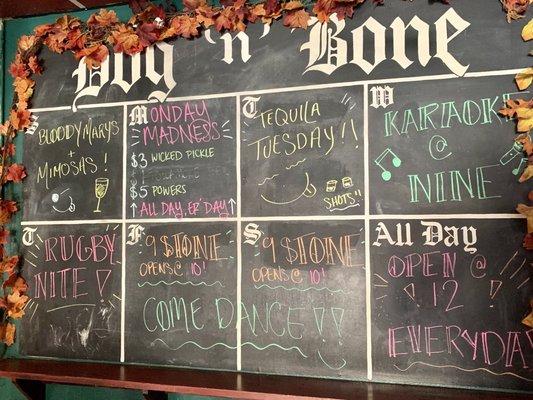 Dog 'n' Bone
S
BLOODY MARYS
+
MIMOSAS!
MONDAY
MADNESS
$3 WICKED PICKLE
$5 POWERS
↑ ALL DAY, ER'DAY ↑
T
TEQUILA
TUESDAY!!
SHOTS
W
KARAOKE
@
NINE
T
RUGBY
NITE!
F
9 STONE
OPENS @ 10!
S
9 STONE
OPENS @ 10!
COME DANCE!!
All Day
OPEN @
12
EVERYDAY